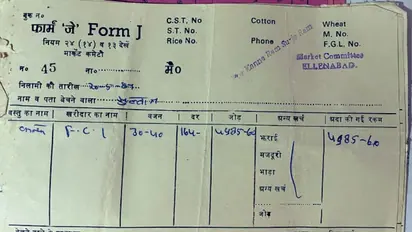 बुक न०
फार्म 'जे' Form J
नियम २४ (१४) व १३ देखें
मार्कट कमेटी
C.S.T. No.
S.T. No.
Rice No.
Cotton
Phone
Wheat
M. No.
F.G.L. No.
Market Committee
ELLENABAD.
न० 45 ना० मै०
निलामी की तारीख
नाम व पता बेचने वाला
वस्तु का नाम खरीदार का नाम वजन दर जोड़ अन्य खर्च अदा की गई रकम
F.C.I 30-40 164- 4985-60 भराई 4985-60
मजदूरी
भाड़ा
अन्य खर्च
जोड़